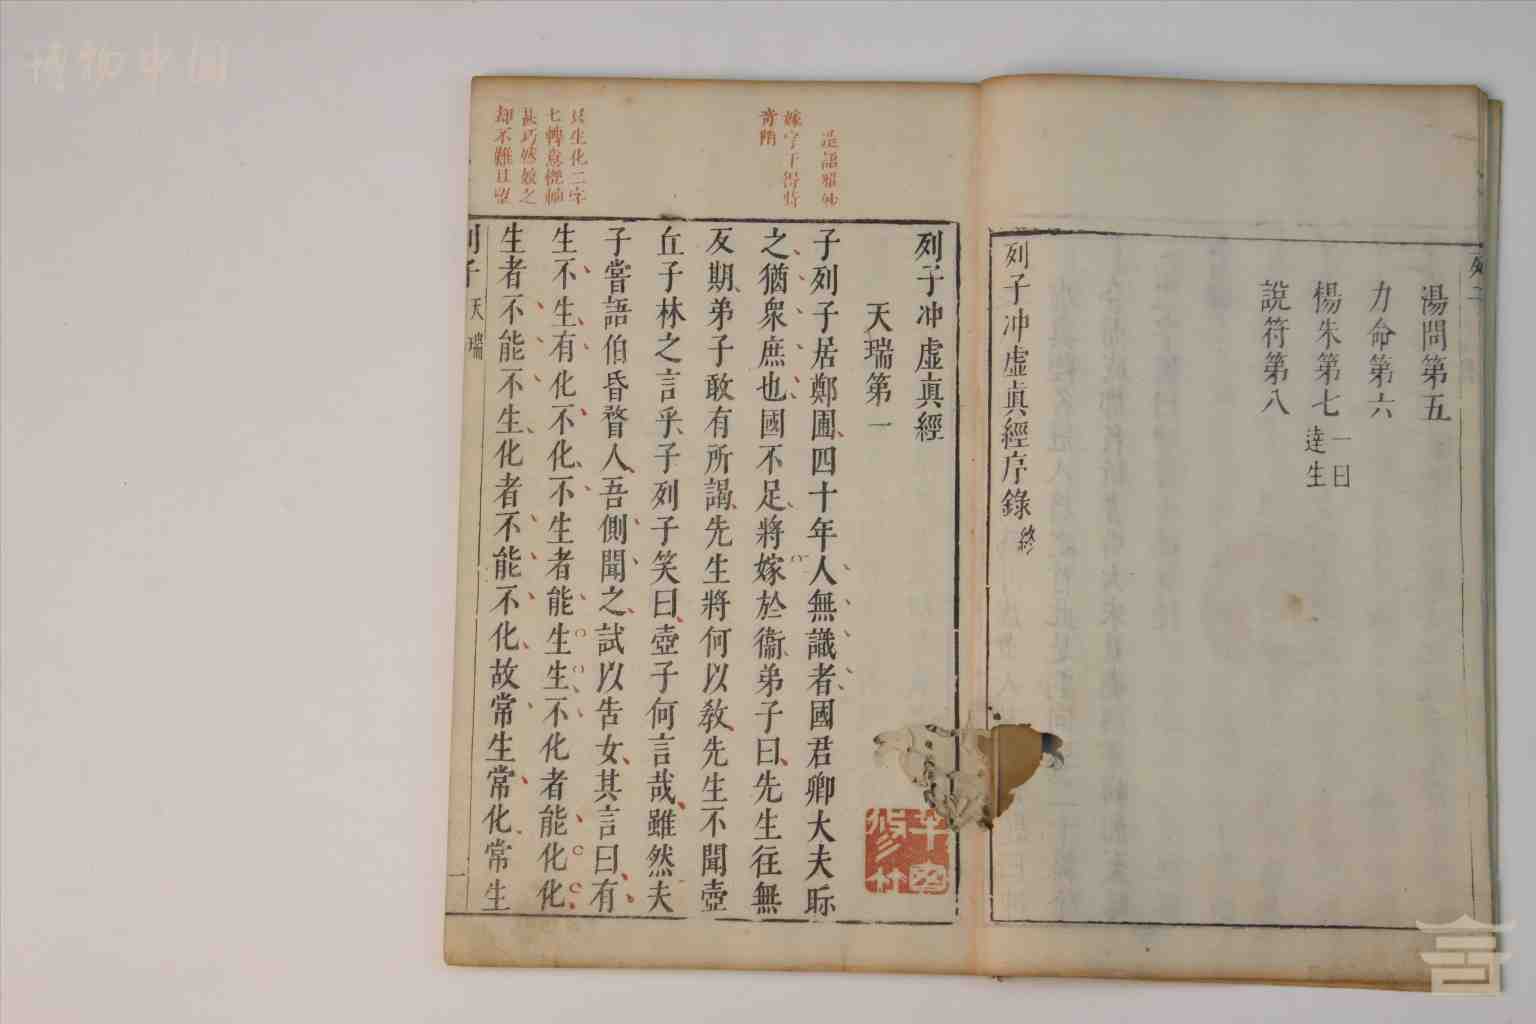 湯問第五
力命第六
楊朱第七 一曰達生
說符第八
列子冲虛眞經序錄 終
列子冲虛眞經
天瑞第一
子列子居鄭圃四十年人無識者國君卿大夫眎
之猶衆庶也國不足將嫁於衞弟子曰先生往無
反期弟子敢有所謁先生將何以敎先生不聞壺
丘子林之言乎子列子笑曰壺子何言哉雖然夫
子嘗語伯昏瞀人吾側聞之試以告女其言曰有
生不生有化不化不生者能生生不化者能化化
生者不能不生化者不能不化故常生常化常生
列子 天瑞
一
嫁字下得
奇
生化二字
七轉意
甚巧然
却不難
博物中国